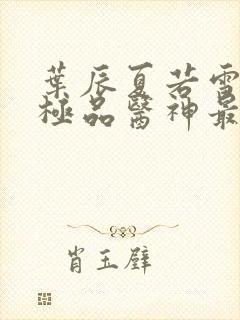 葉辰夏若雪
極品醫神最
肖玉璧